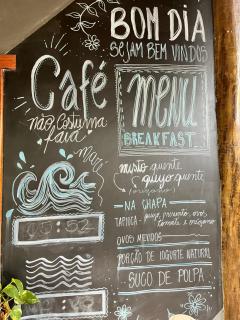 BOM DIA
SEJAM BEM VINDOS
Café
não costuma
faiá
MENU
BREAKFAST
misto quente
queijo quente
(orégano)
NA CHAPA
TAPIOCA - queijo, presunto, ovos,
tomate e orégano
OVOS MEXIDOS
PORÇÃO DE IOGURTE NATURAL
SUCO DE POLPA